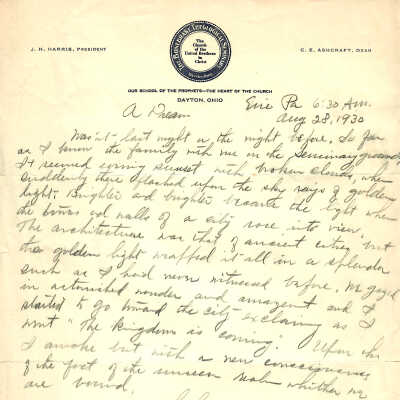 J. H. HARRIS, PRESIDENT
THE BONEBRAKE THEOLOGICAL SEMINARY
The Church of the United Brethren in Christ
C. E. ASHCRAFT, DEAN
OUR SCHOOL OF THE PROPHETS—THE HEART OF THE CHURCH
DAYTON, OHIO
Erie Pa 6:30 A.m.
Aug 28, 1930
A Dream
Was it last night or the night before. So far
as I know the family with me on the Seminary grounds
It seemed evening sunset with broken clouds, when
suddenly there flashed upon the sky rays of golden
light. Brighter and brighter became the light when
the towers and walls of a city rose into view.
The architecture was that of ancient cities but
the golden light wrapped it all in a splendor
such as I had never witnessed before. We gazed
in astonished wonder and amazement and I
started to go toward the city exclaiming as I
went "The Kingdom is coming". Upon this
I awoke but with a new consciousness
of the fact of the unseen realm whither we
are bound.